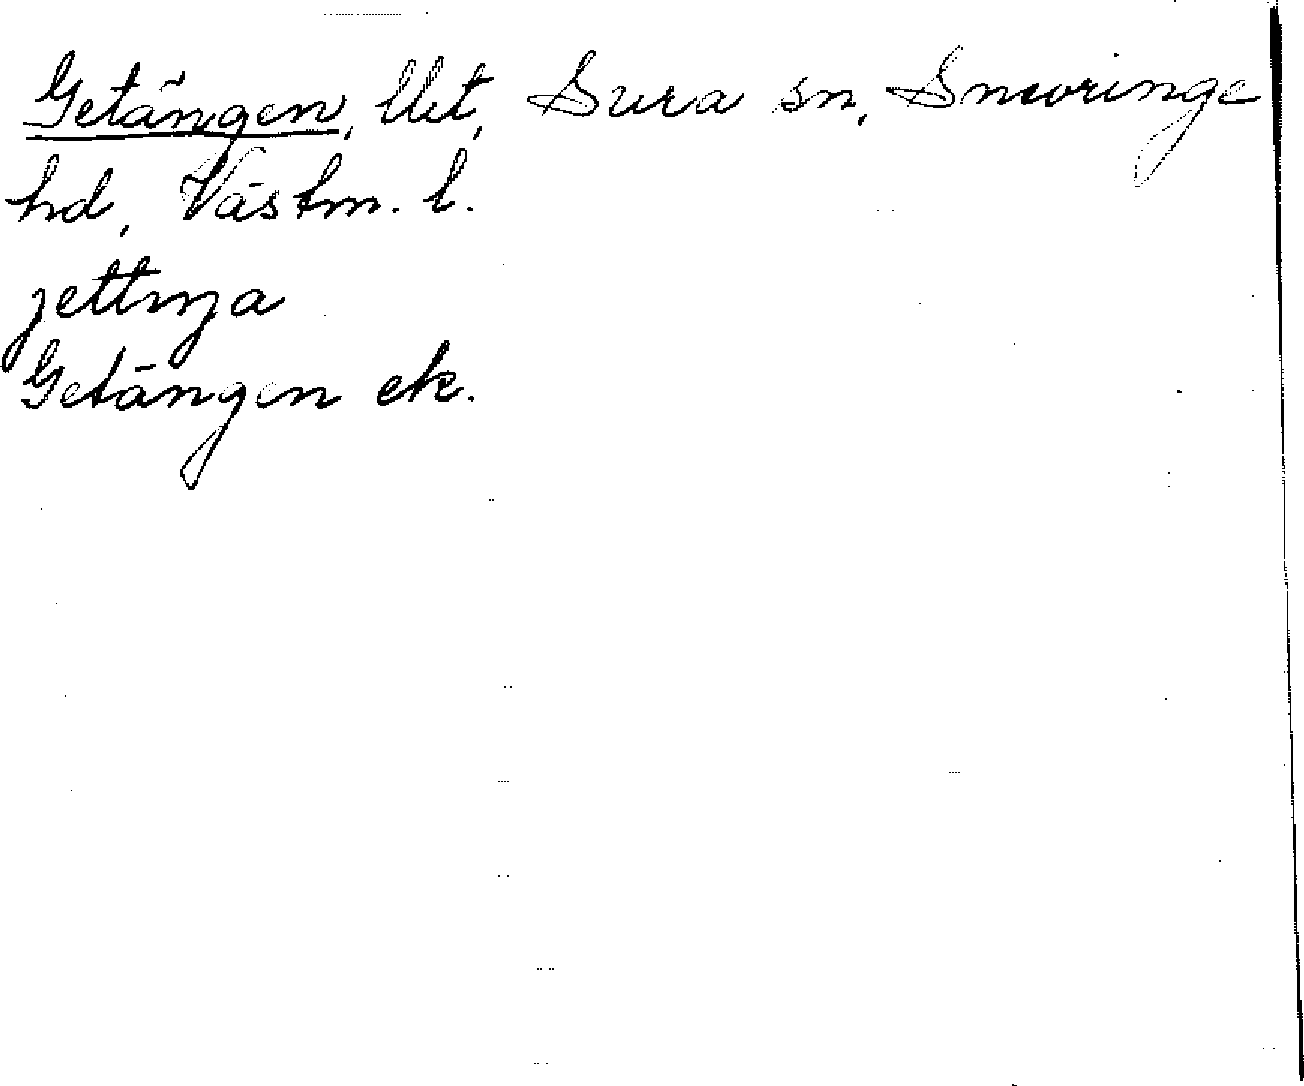 Getängen, Ulet, Sura sn, Snevringe
hd, Västm. l.
jettnja
Getängen ek.